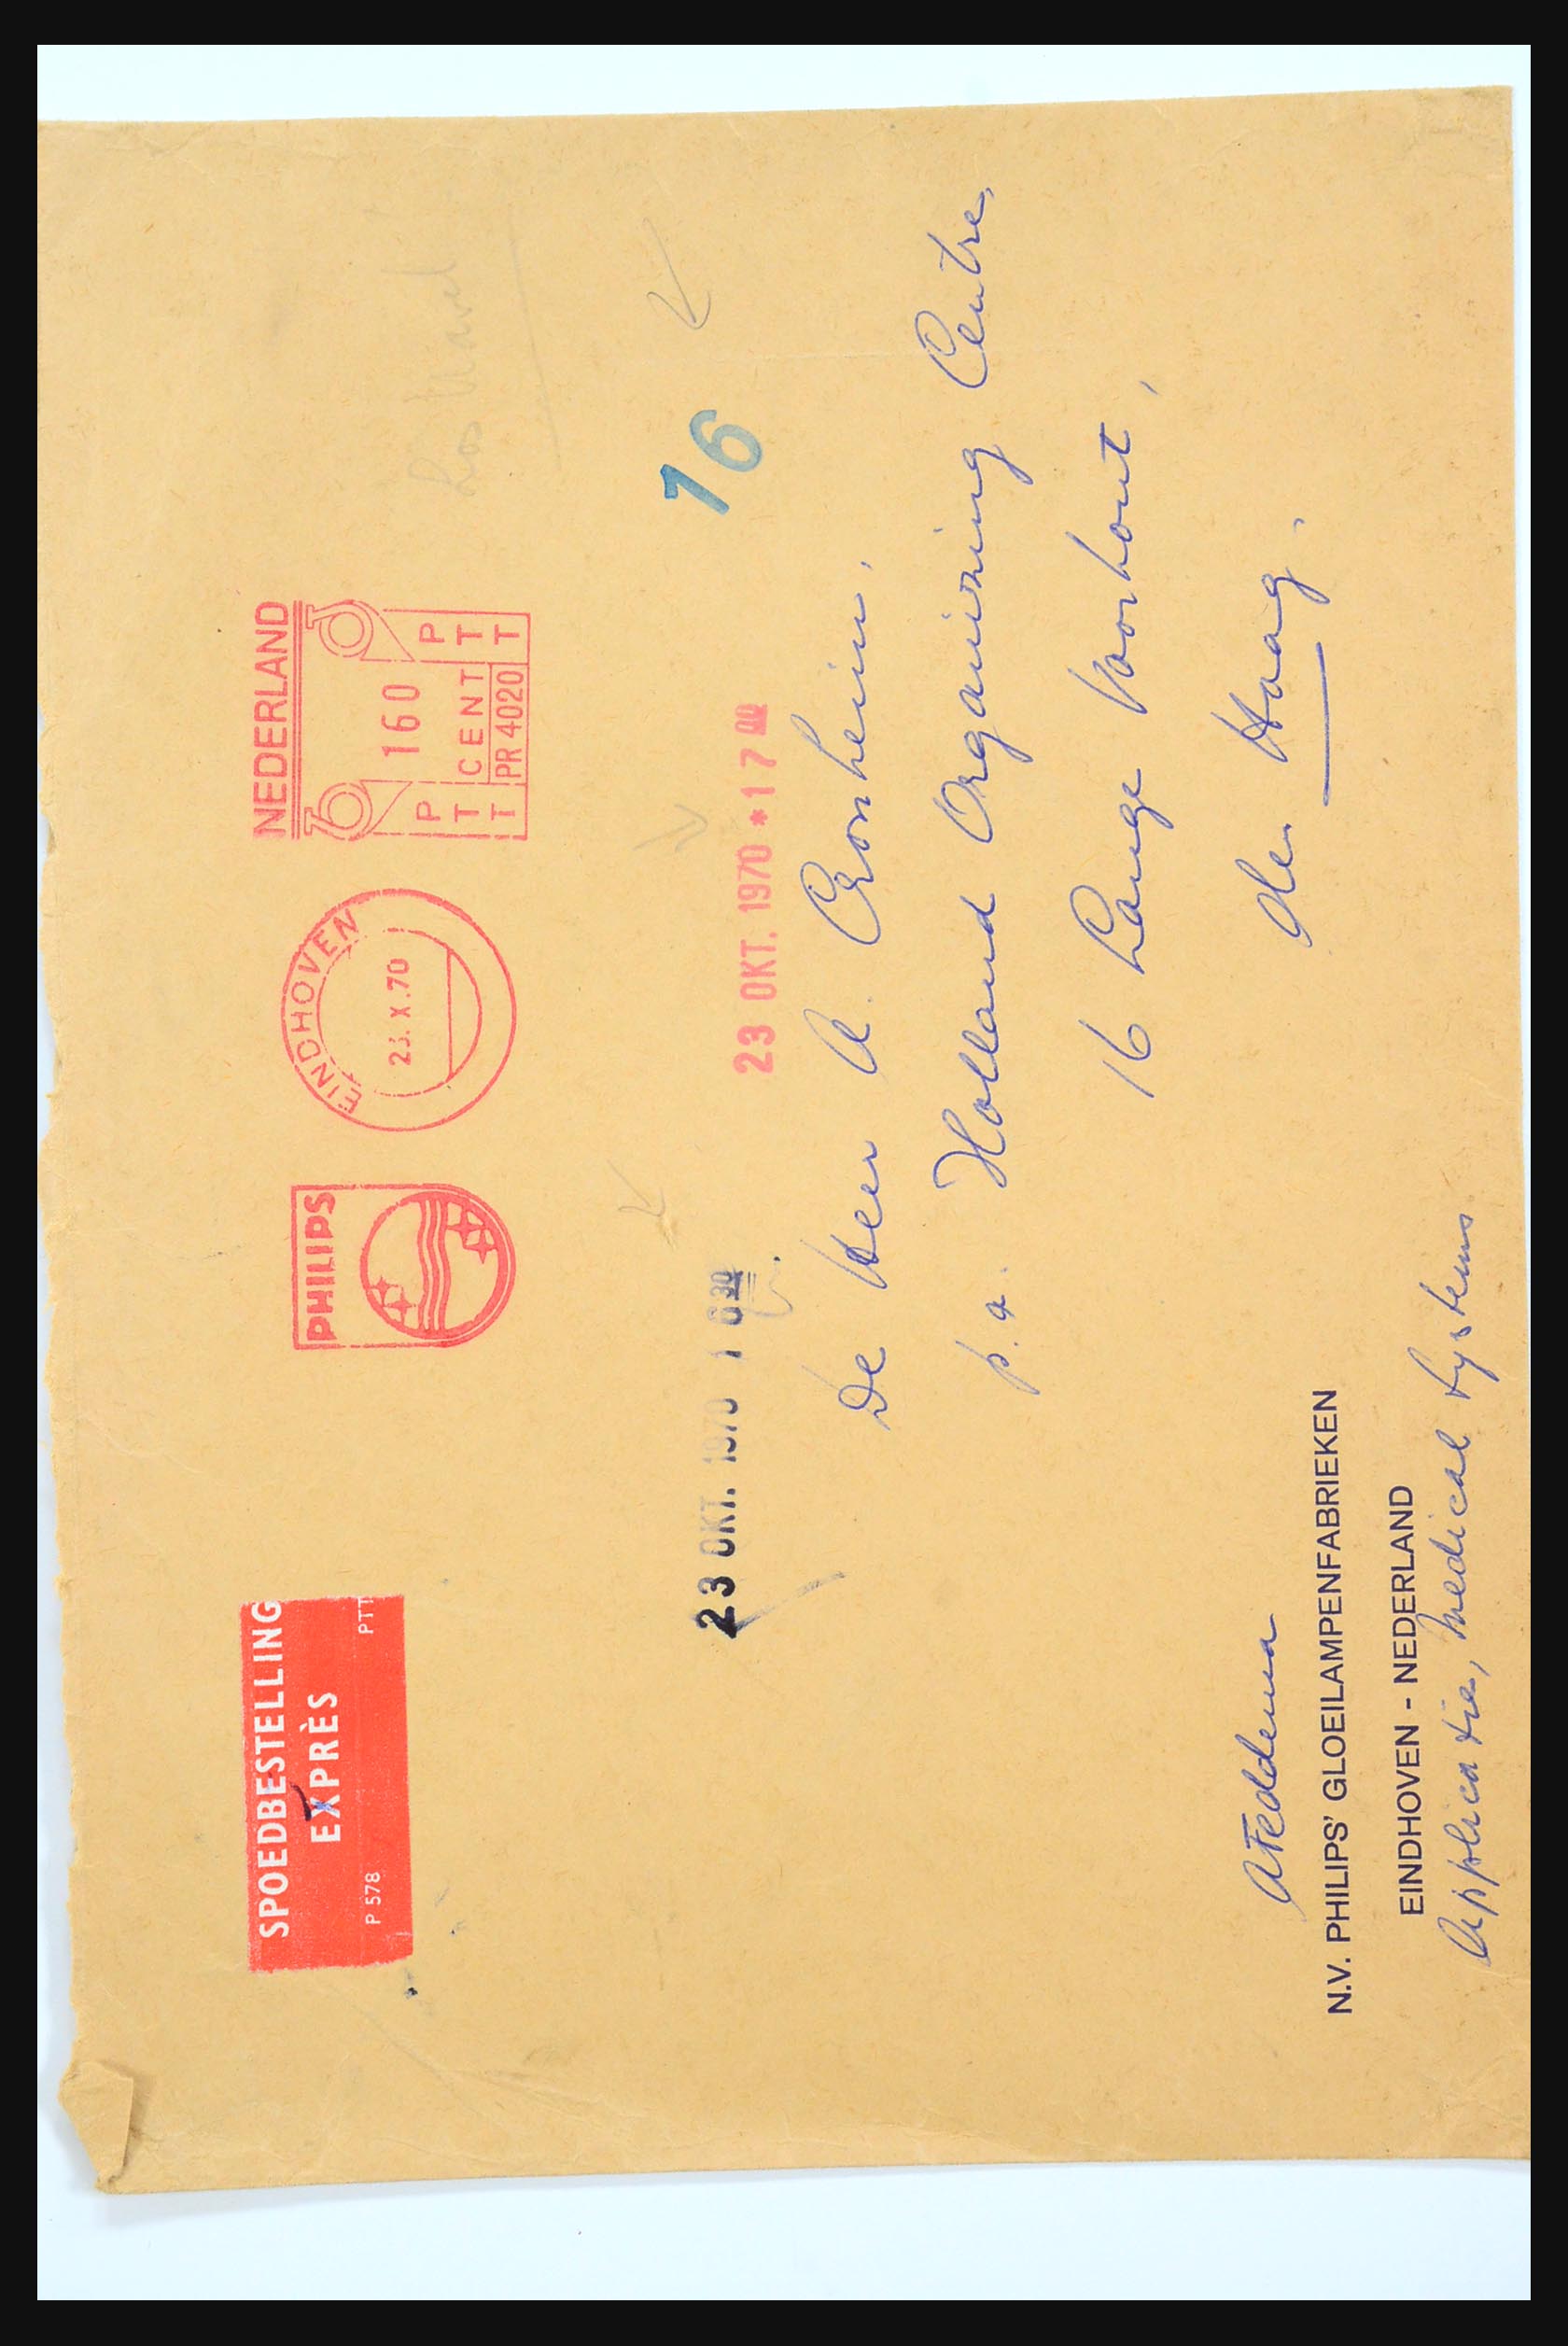 SPOEDBESTELLING
EXPRÈS
P 578 PTT
PHILIPS
EINDHOVEN
23.X.70
NEDERLAND
160
CENT
PR 4020
P T T
P T T
23 OKT. 1970 1630
23 OKT. 1970 *1700
16
De Heer A. Cronheim,
p.a. Holland Organising Centre,
16 Lange Voorhout,
den Haag.
A Feddema
N.V. PHILIPS' GLOEILAMPENFABRIEKEN
EINDHOVEN - NEDERLAND
Applicatie, Medical Systems